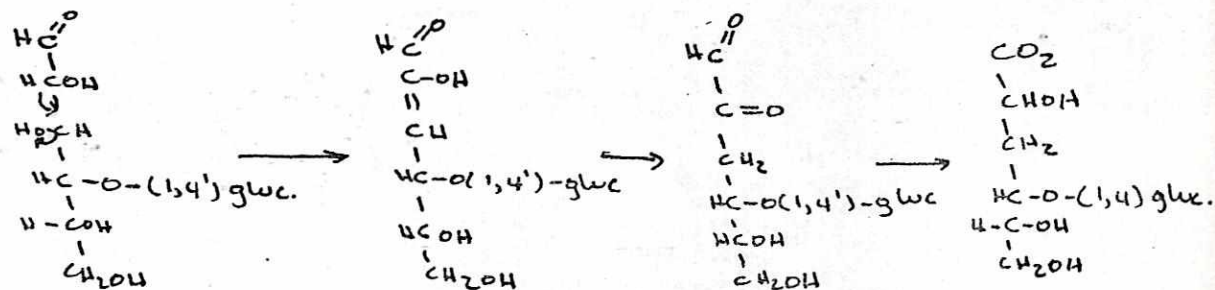 HC=O
HCOH
HOCH
HC-O-(1,4')gluc.
H-COH
CH2OH
HC=O
C-OH
CH
HC-O(1,4')-gluc
HCOH
CH2OH
HC=O
C=O
CH2
HC-O(1,4')-gluc
HCOH
CH2OH
CO2
CHOH
CH2
HC-O-(1,4)gluc.
H-C-OH
CH2OH